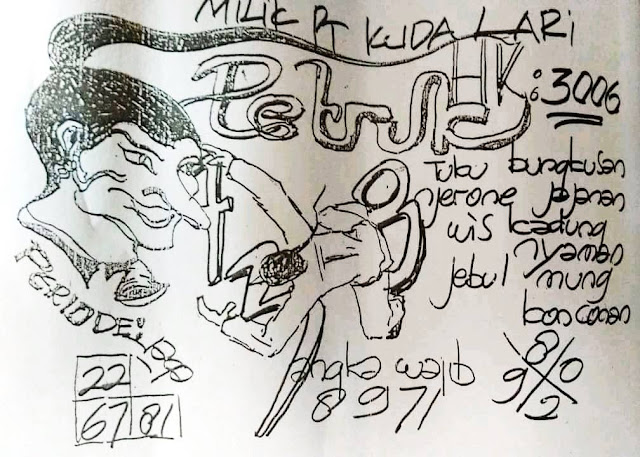 MILIK R KUDA LARI
Petruk HK
3006
Tuku bungkusan
njerone jajanan
wis kadung
nyaman
jebul mung
bonconan
PERIODE:
22
67 81
angka wajib
8 9 7 1
8
9 0
2